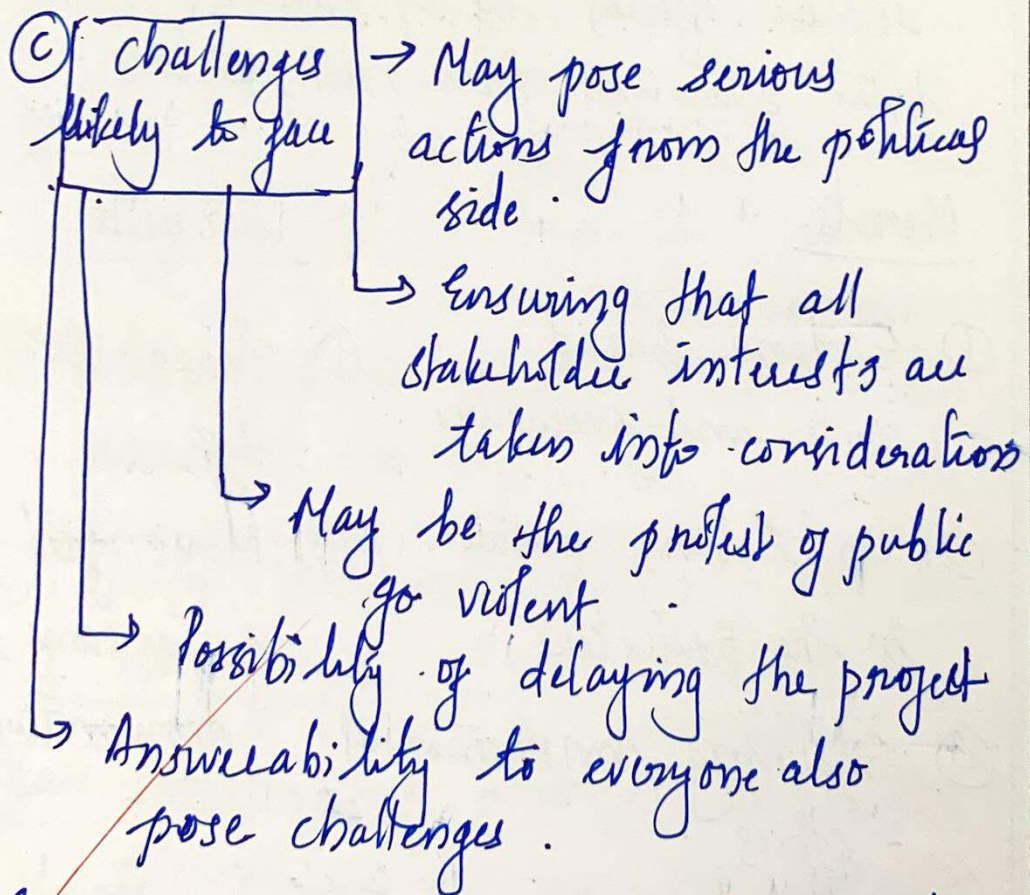 (C) Challenges
likely to face
→ May pose serious
actions from the political
side.
→ Ensuring that all
stakeholder interests are
taken into consideration
→ May be the protest of public
go violent.
→ Possibility of delaying the project
→ Answerability to everyone also
pose challenges.